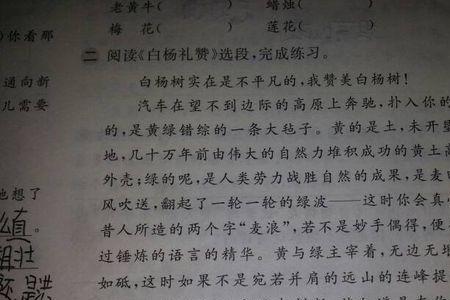 老黄牛(　　) 蜡烛(
)你看那 梅　花(　　) 莲花(
二　阅读《白杨礼赞》选段,完成练习。
白杨树实在是不平凡的,我赞美白杨树!
通向新 汽车在望不到边际的高原上奔驰,扑入你的
儿需要 的,是黄绿错综的一条大毡子。黄的是土,未开垦
地,几十万年前由伟大的自然力堆积成功的黄土高
外壳;绿的呢,是人类劳力战胜自然的成果,是麦田
他想了 风吹送,翻起了一轮一轮的绿波——这时你会真
真 昔人所造的两个字“麦浪”,若不是妙手偶得,便
壮 过锤炼的语言的精华。黄与绿主宰着,无边无
如砥,这时如果不是宛若并肩的远山的连峰提